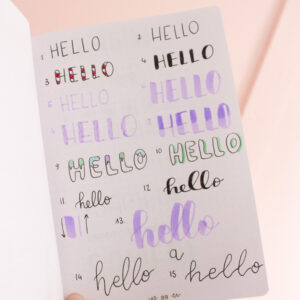 1. HELLO 2. HELLO
3. HELLO 4. HELLO
5. HELLO 6. HELLO
HELLO 7. HELLO
9. HELLO 10. HELLO
11. hello 12. hello
13. hello
a
14 hello 15 hello